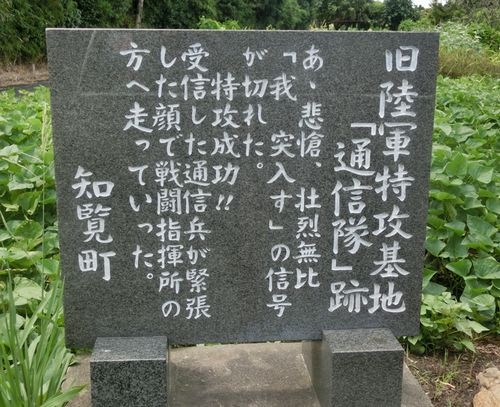 旧陸軍特攻基地
「通信隊」跡
あゝ悲愴、壮烈無比
「我 突入す」の信号
が切れた。
特攻成功!!
受信した通信兵が緊張
した顔で戦闘指揮所の
方へ走っていった。
知覧町